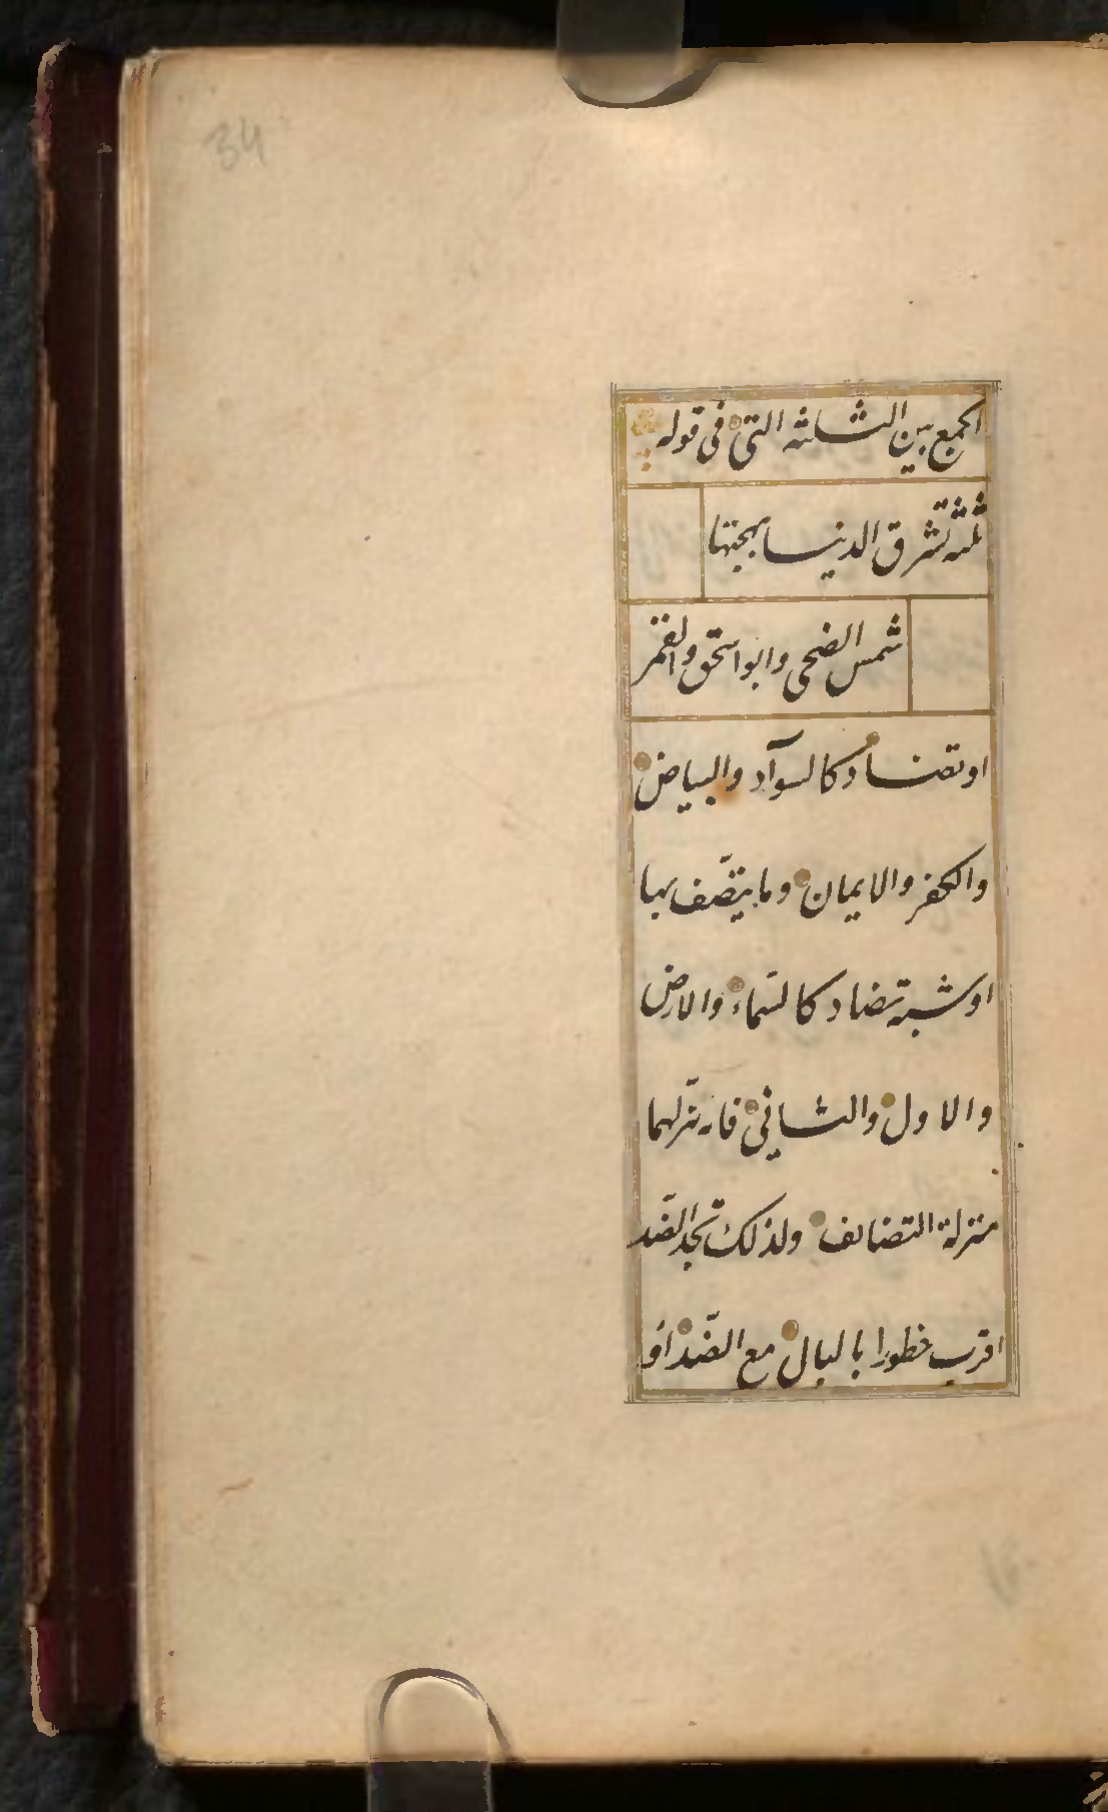 34
الجمع بين الثلثه التى فى قوله
ثلثه تشرق الدنيا ببهجتها
شمس الضحى وابو اسحق والقمر
او تضاد كالسوآد والبياض
والكفر والايمان وما يتصّف بها
او شبه تضاد كالسّماء والارض
والاول والثانى فانه ينزلهما
منزلة التضايف ولذلك تجد الضّد
اقرب خطورا بالبال مع الضّد او